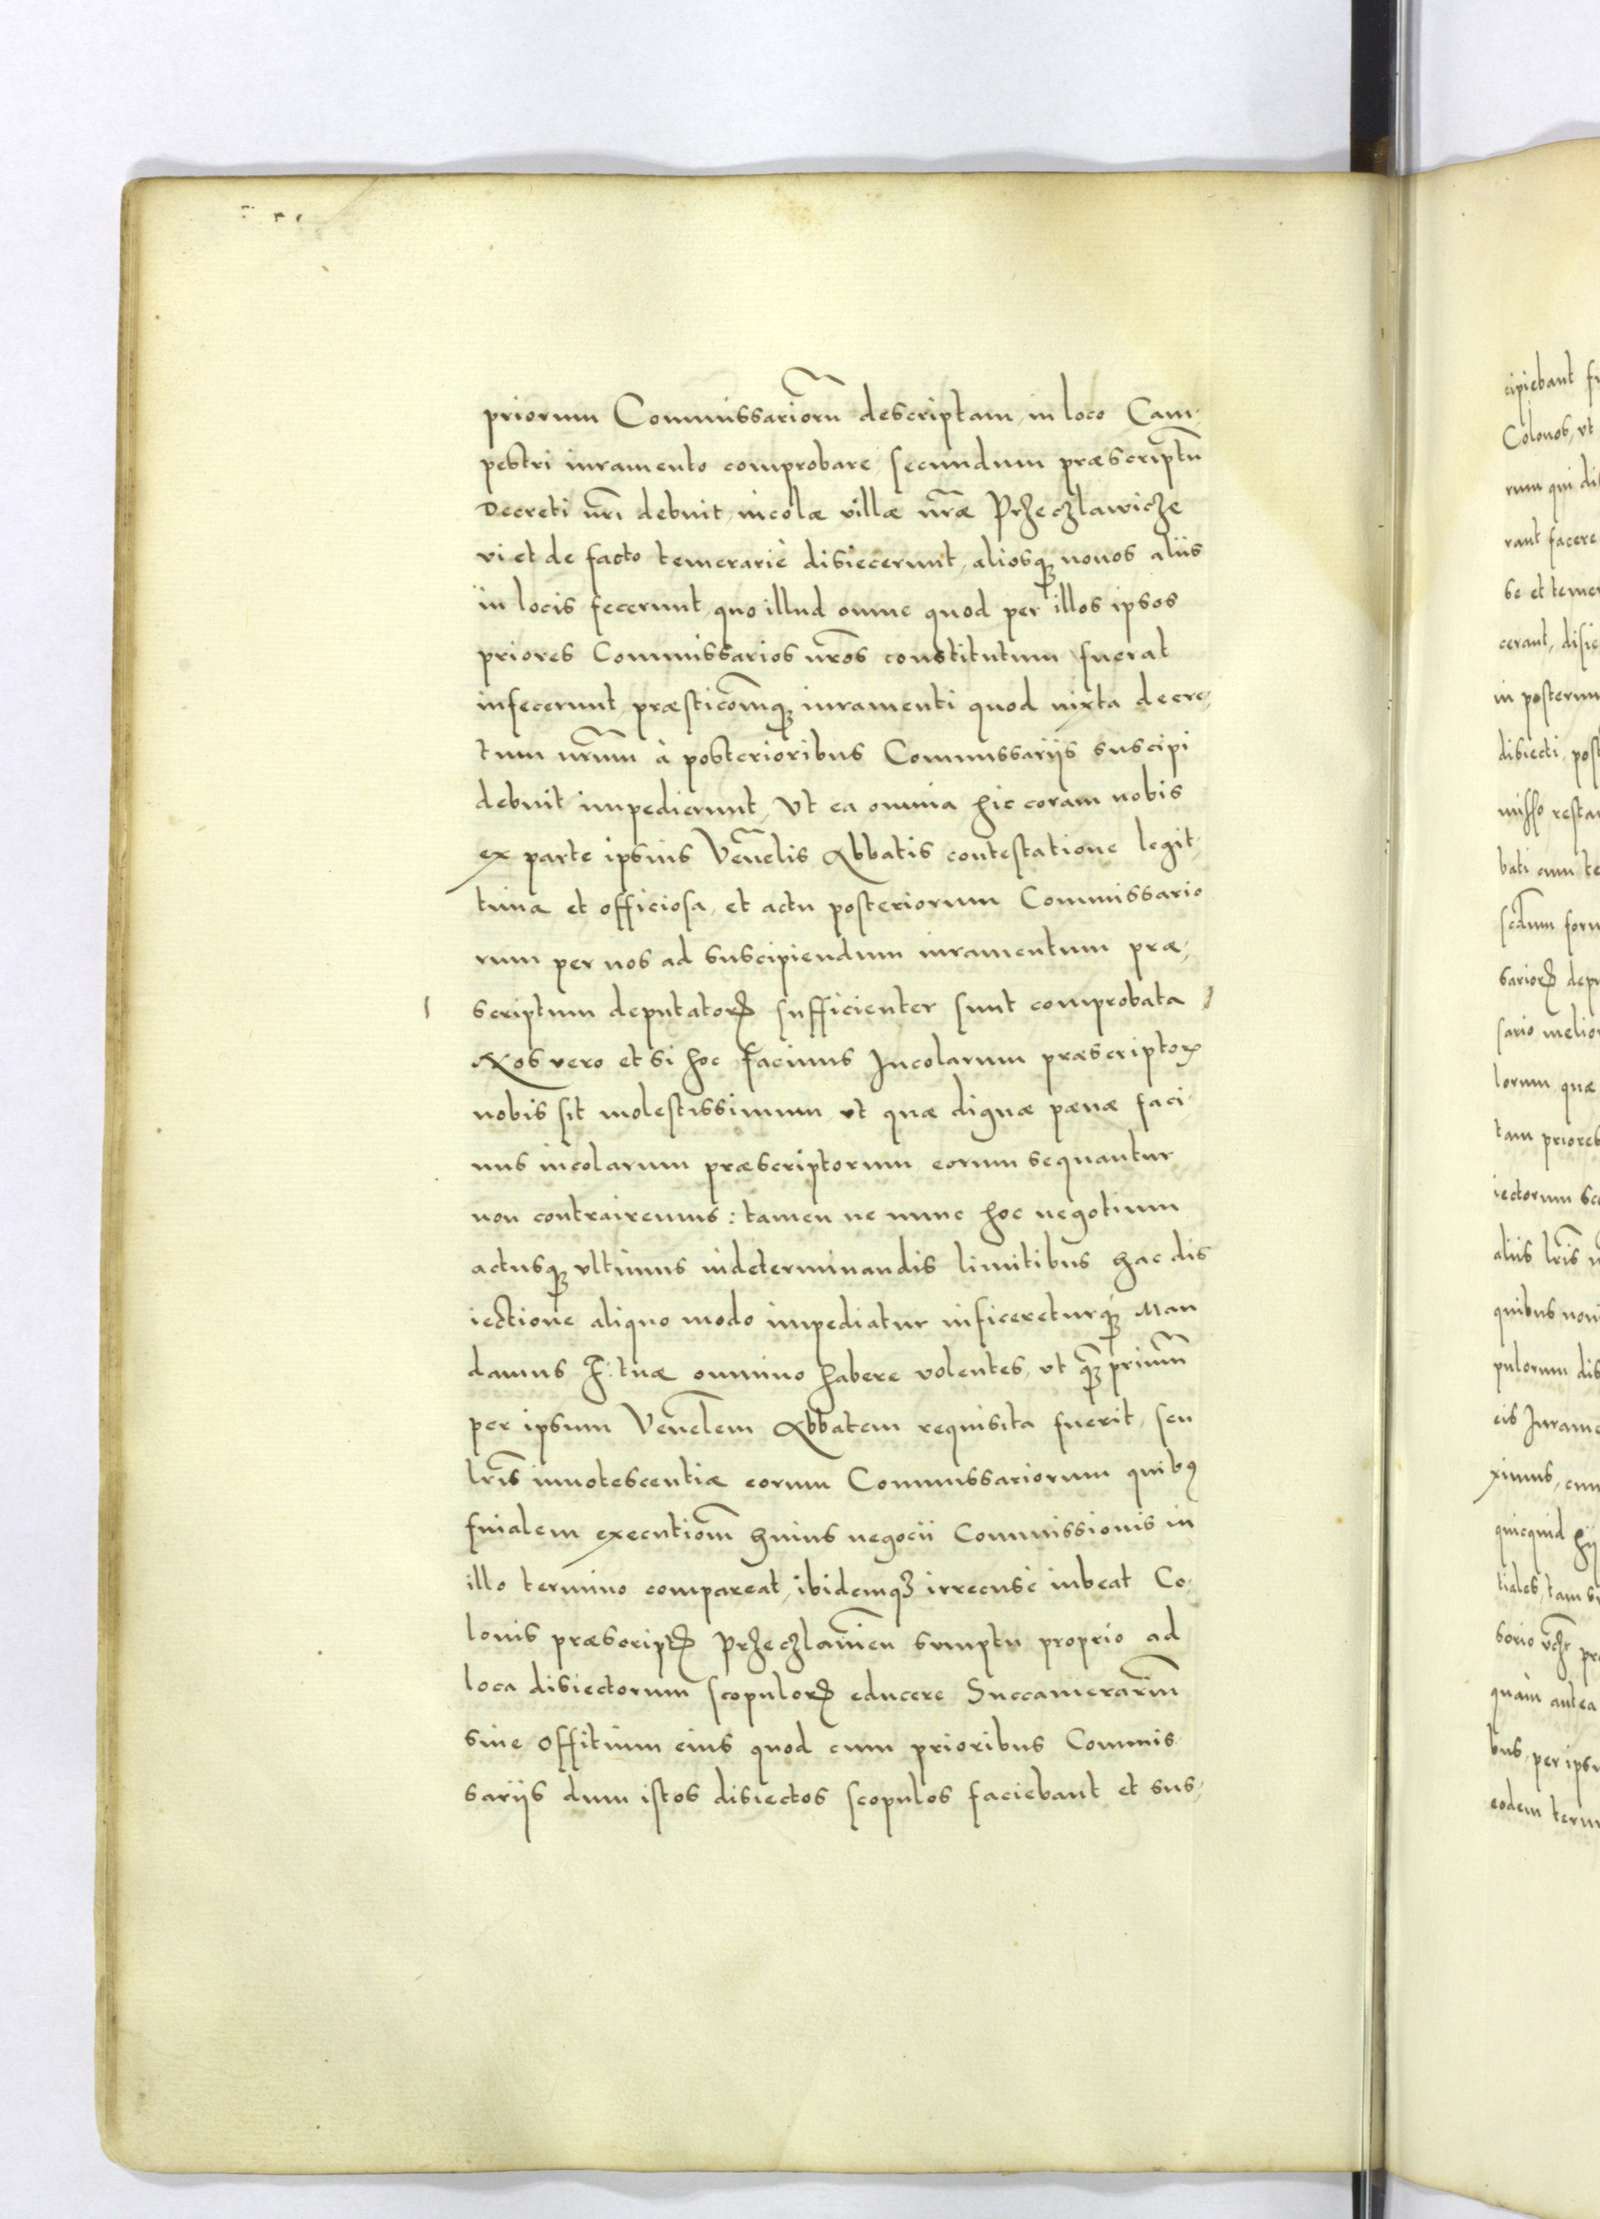 priorum Commissarioru͂ descriptam, in loco Cam-
pestri iuramento comprobare, secundum præscriptu͂
Decreti nr͂i debuit, incolæ villæ nr͂æ Przeczlawicze
vi et de facto temerariè disiecerunt, aliosqꝫ nouos aliis
in locis fecerunt, quo illud omne quod per illos ipsos
priores Commissarios nr͂os constitutum fuerat
infecerunt, præstico͂mqꝫ iuramenti quod iuxta decre-
tum nr͂um à posterioribus Commissariis suscipi
debuit impedierunt, Vt ea omnia hic coram nobis
ex parte ipsius Ven͂elis Abbatis contestatione legit-
tima et officiosa, et actu posteriorum Commissario
rum per nos ad suscipiendum iuramentum præ-
scriptum deputatorꝝ sufficienter sunt comprobata
Nos vero et si hoc facinus Incolarum præscriptorꝝ
nobis sit molestissimum, vt quæ dignæ pænæ faci-
nus incolarum præscriptorum eorum sequantur
non contrairemus: tamen ne nunc hoc negotium
actusqꝫ vltimus indeterminandis limitibus hac dis
iectione aliquo modo impediatur inficereturqꝫ Man
damus F: tuæ omnino habere volentes, vt qꝫ͂ primu͂
per ipsum Ven͂elem Abbatem requisita fuerit, seu
lr͂is innotescentiæ eorum Commissariorum quibꝰ
finialem executiom͂ huius negocii Commissionis in
illo termino compareat, ibidemqꝫ irrecusè iubeat Co-
lonis præscriptꝝ Przeczlawien͂ sumptu proprio ad
loca disiectorum scopulorꝝ educere Succamerariu͂
siue Offitium eius quod cum prioribus Commis-
sariis dum istos disiectos scopulos faciebant et sus-
cipiebant
Colonos, vt
rum qui
rant facere
se et
cerant,
in posterum
disiecti,
bati cum
sariorꝝ
lorum quæ
tam
iectorum
aliis lr͂is
quibus
pulorum
eis
ximus,
quicquid
tiales, tam
sorio
quàm antea
bus, per
eodem